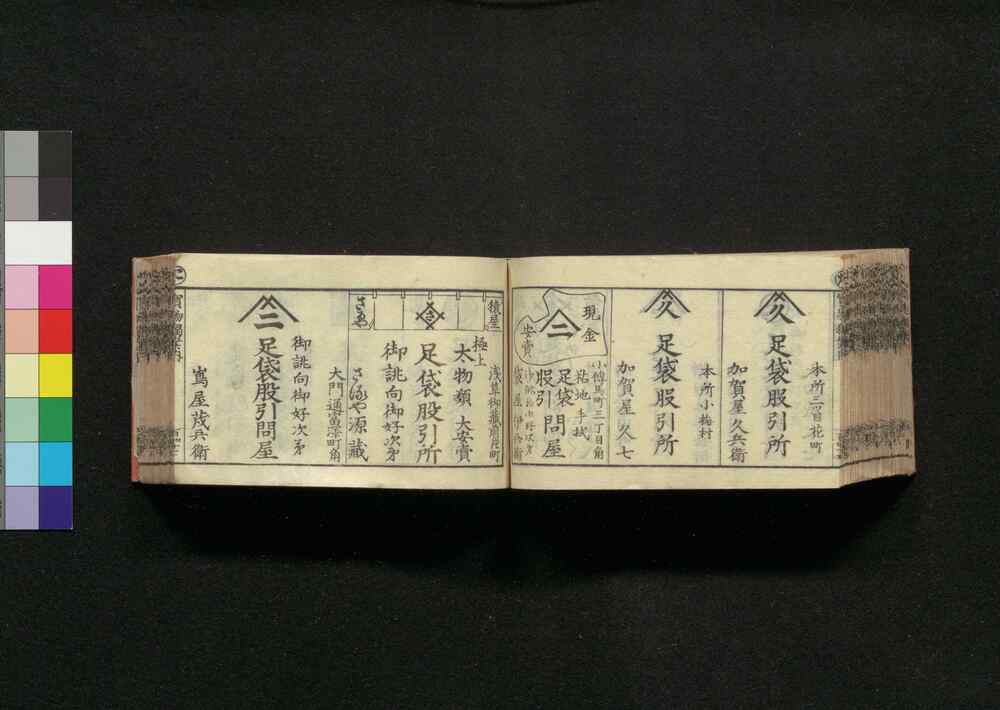 本所三ツ目花町
久
足袋股引所
加賀屋久兵衛
本所小梅村
久
足袋股引所
加賀屋久七
現金
安賣
二
小傳馬町三丁目角
粘地手拭
足袋
股引
問屋
猿屋
浅草御蔵前片町
極上
太物類大安賣
足袋股引所
御誂向御好次第
さるや源蔵
大門通富澤町角
御誂向御好次第
二
足袋股引問屋
嶌屋茂兵衛